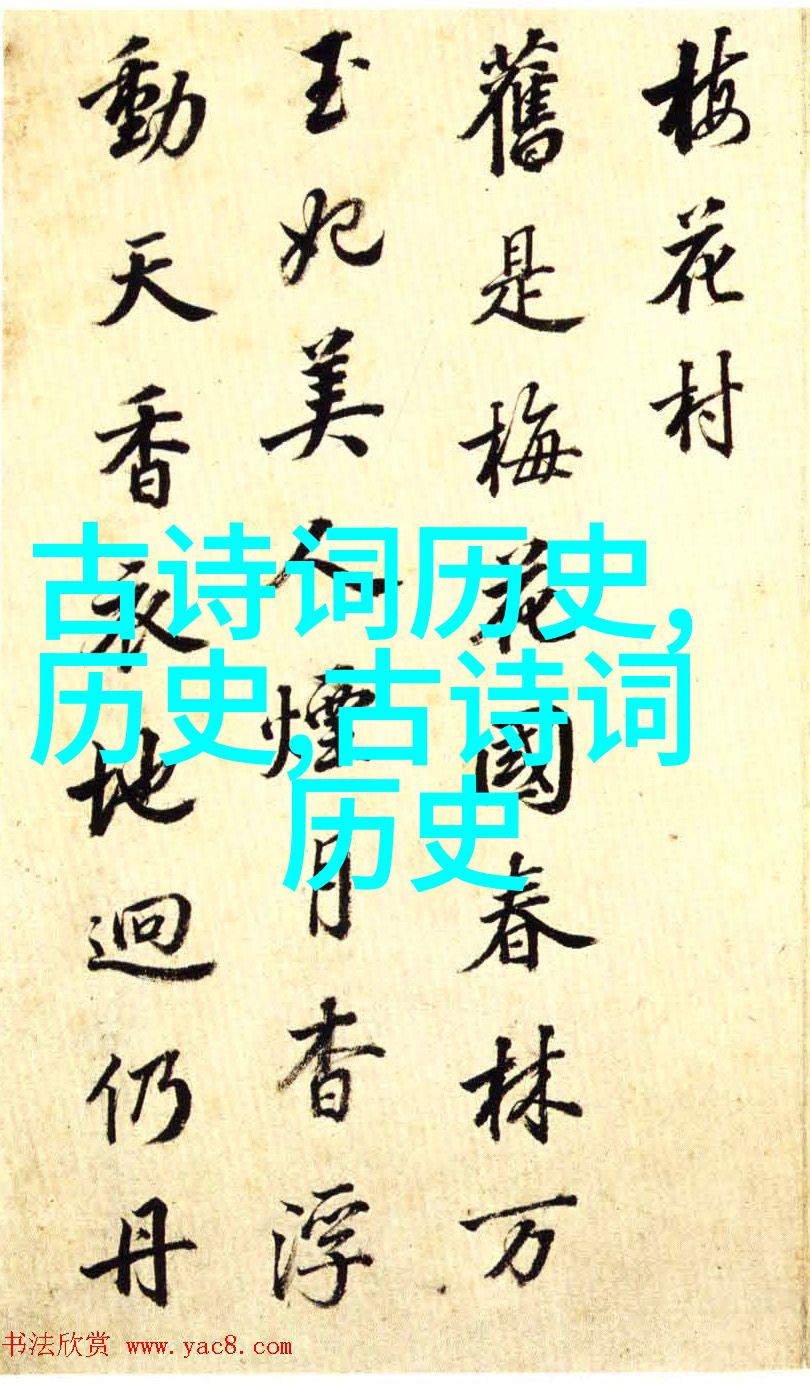 梅花村
舊是梅花國春林万
玉妃美人煙月杳浮
動天香地迥仍丹
古诗词历史,
历史,古诗词
历史
书法欣赏 www.yac8.com